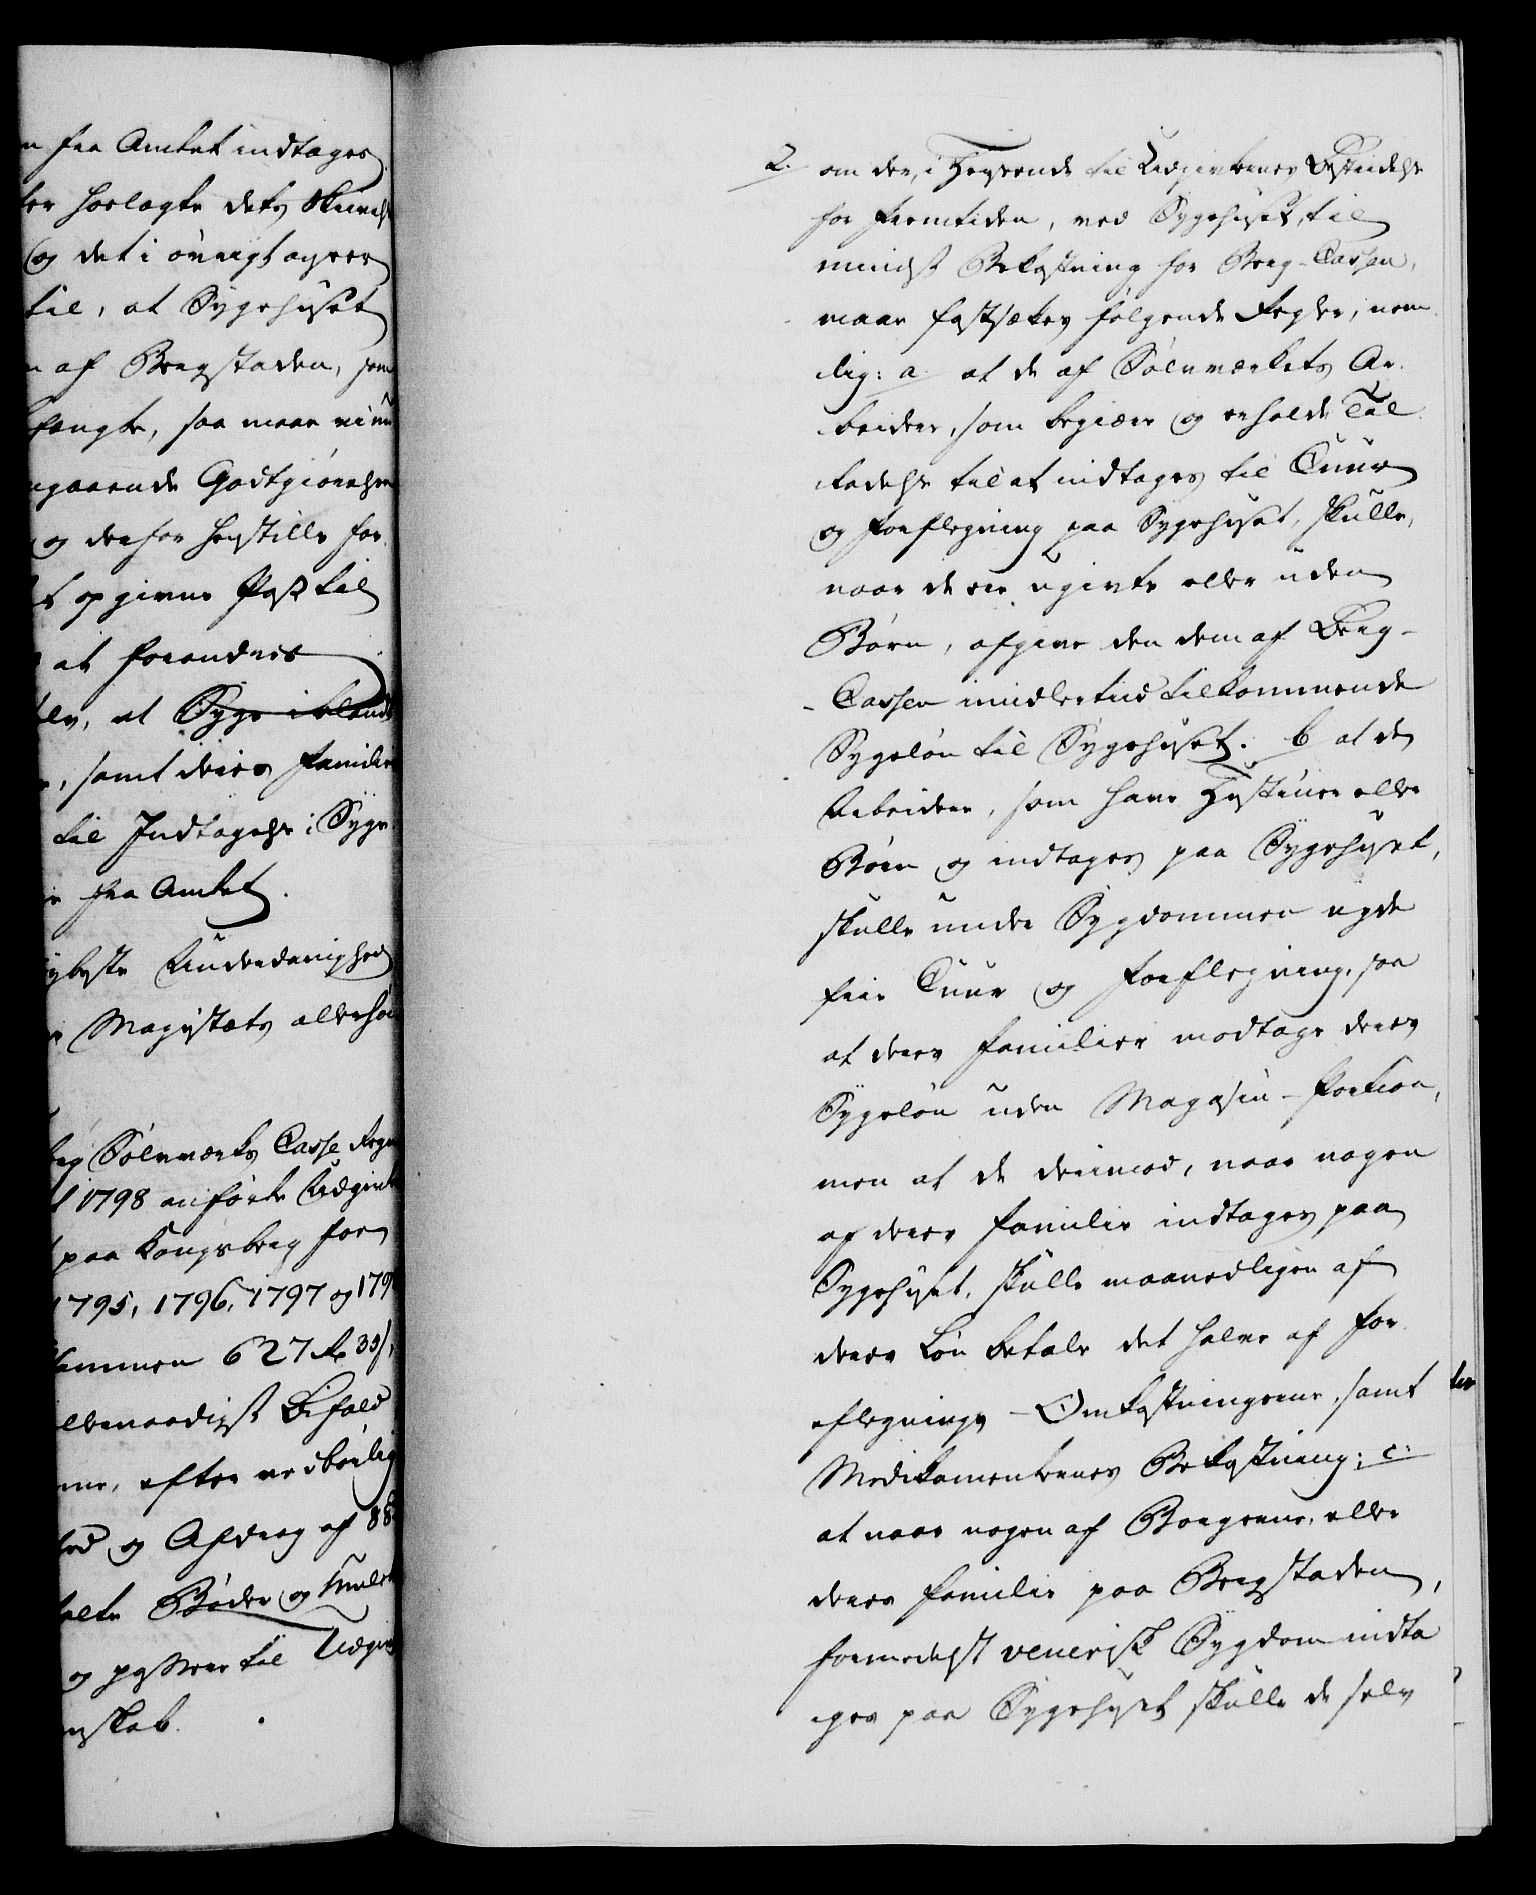 n fra Amtet indtages
ter forlagte dets
og det i øvrigt agerer
til, at Sygehuset
n af Bergstaden, som
fængte, saa maae vi
ngaaende Godtgiørelsen
og derfor henstille for
t opgivne Post til
at forandres
elv, at Syge iblandt
, samt deres Familie
til Indtagelse i Syge
r fra Amtet.
dybeste Underdanighed
r Majestæts allerhøi
berg Sølvværks Casse Regn
1798 anførte Udgivt
paa Kongsberg for
1795, 1796, 1797 og 179
sammen 627 Rd 33 s,
allernaadigst Bifald
ne, efter vedbørlig
hed og Afdrag af 88
talte Bøder og Mulct
og passerer til Udgivt
nskab.
2. om der, i Henseende til Udgivternes Bestridelse
for Fremtiden, ved Sygehuset, til
mindst Bekostning for Berg-Cassen,
maae fastsættes følgende Regler, nem
lig: a. at de af Sølvværkets Ar-
beidere, som begiære og erholde Til
ladelse til at indtages til Cuur
og Forflegning paa Sygehuset, skulle,
naar de ere ugivte eller uden
Børn, afgive den dem af Berg-
Cassen imidlertid tilkommende
Sygeløn til Sygehuset. b at de
Arbeidere, som have Hustruer eller
Børn og indtages paa Sygehuset,
skulle under Sygdommen nyde
frie Cuur og Forflegning, saa
at deres Familier modtage deres
Sygeløn uden Magasin-Portion,
men at de derimod, naar nogen
af deres Familie indtages paa
Sygehuset, skulle maanedligen af
deres Løn betale det halve af For
eflegnings-Omkostningerne, samt
Medikamenternes Bekostning; c:
at naar nogen af Borgerne, eller
deres Familie paa Bergstaden,
formedelst venerisk Sygdom indta
ges paa Sygehuset skulle de selv